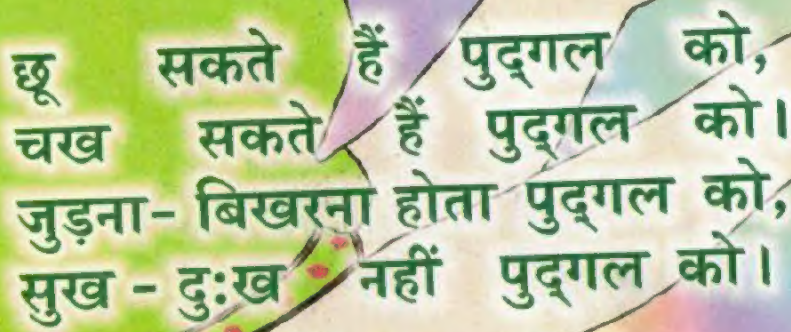 छू सकते हैं पुद्‌गल को,
चख सकते हैं पुद्‌गल को।
जुड़ना- बिखरना होता पुद्‌गल को,
सुख - दु:ख नहीं पुद्‌गल को।